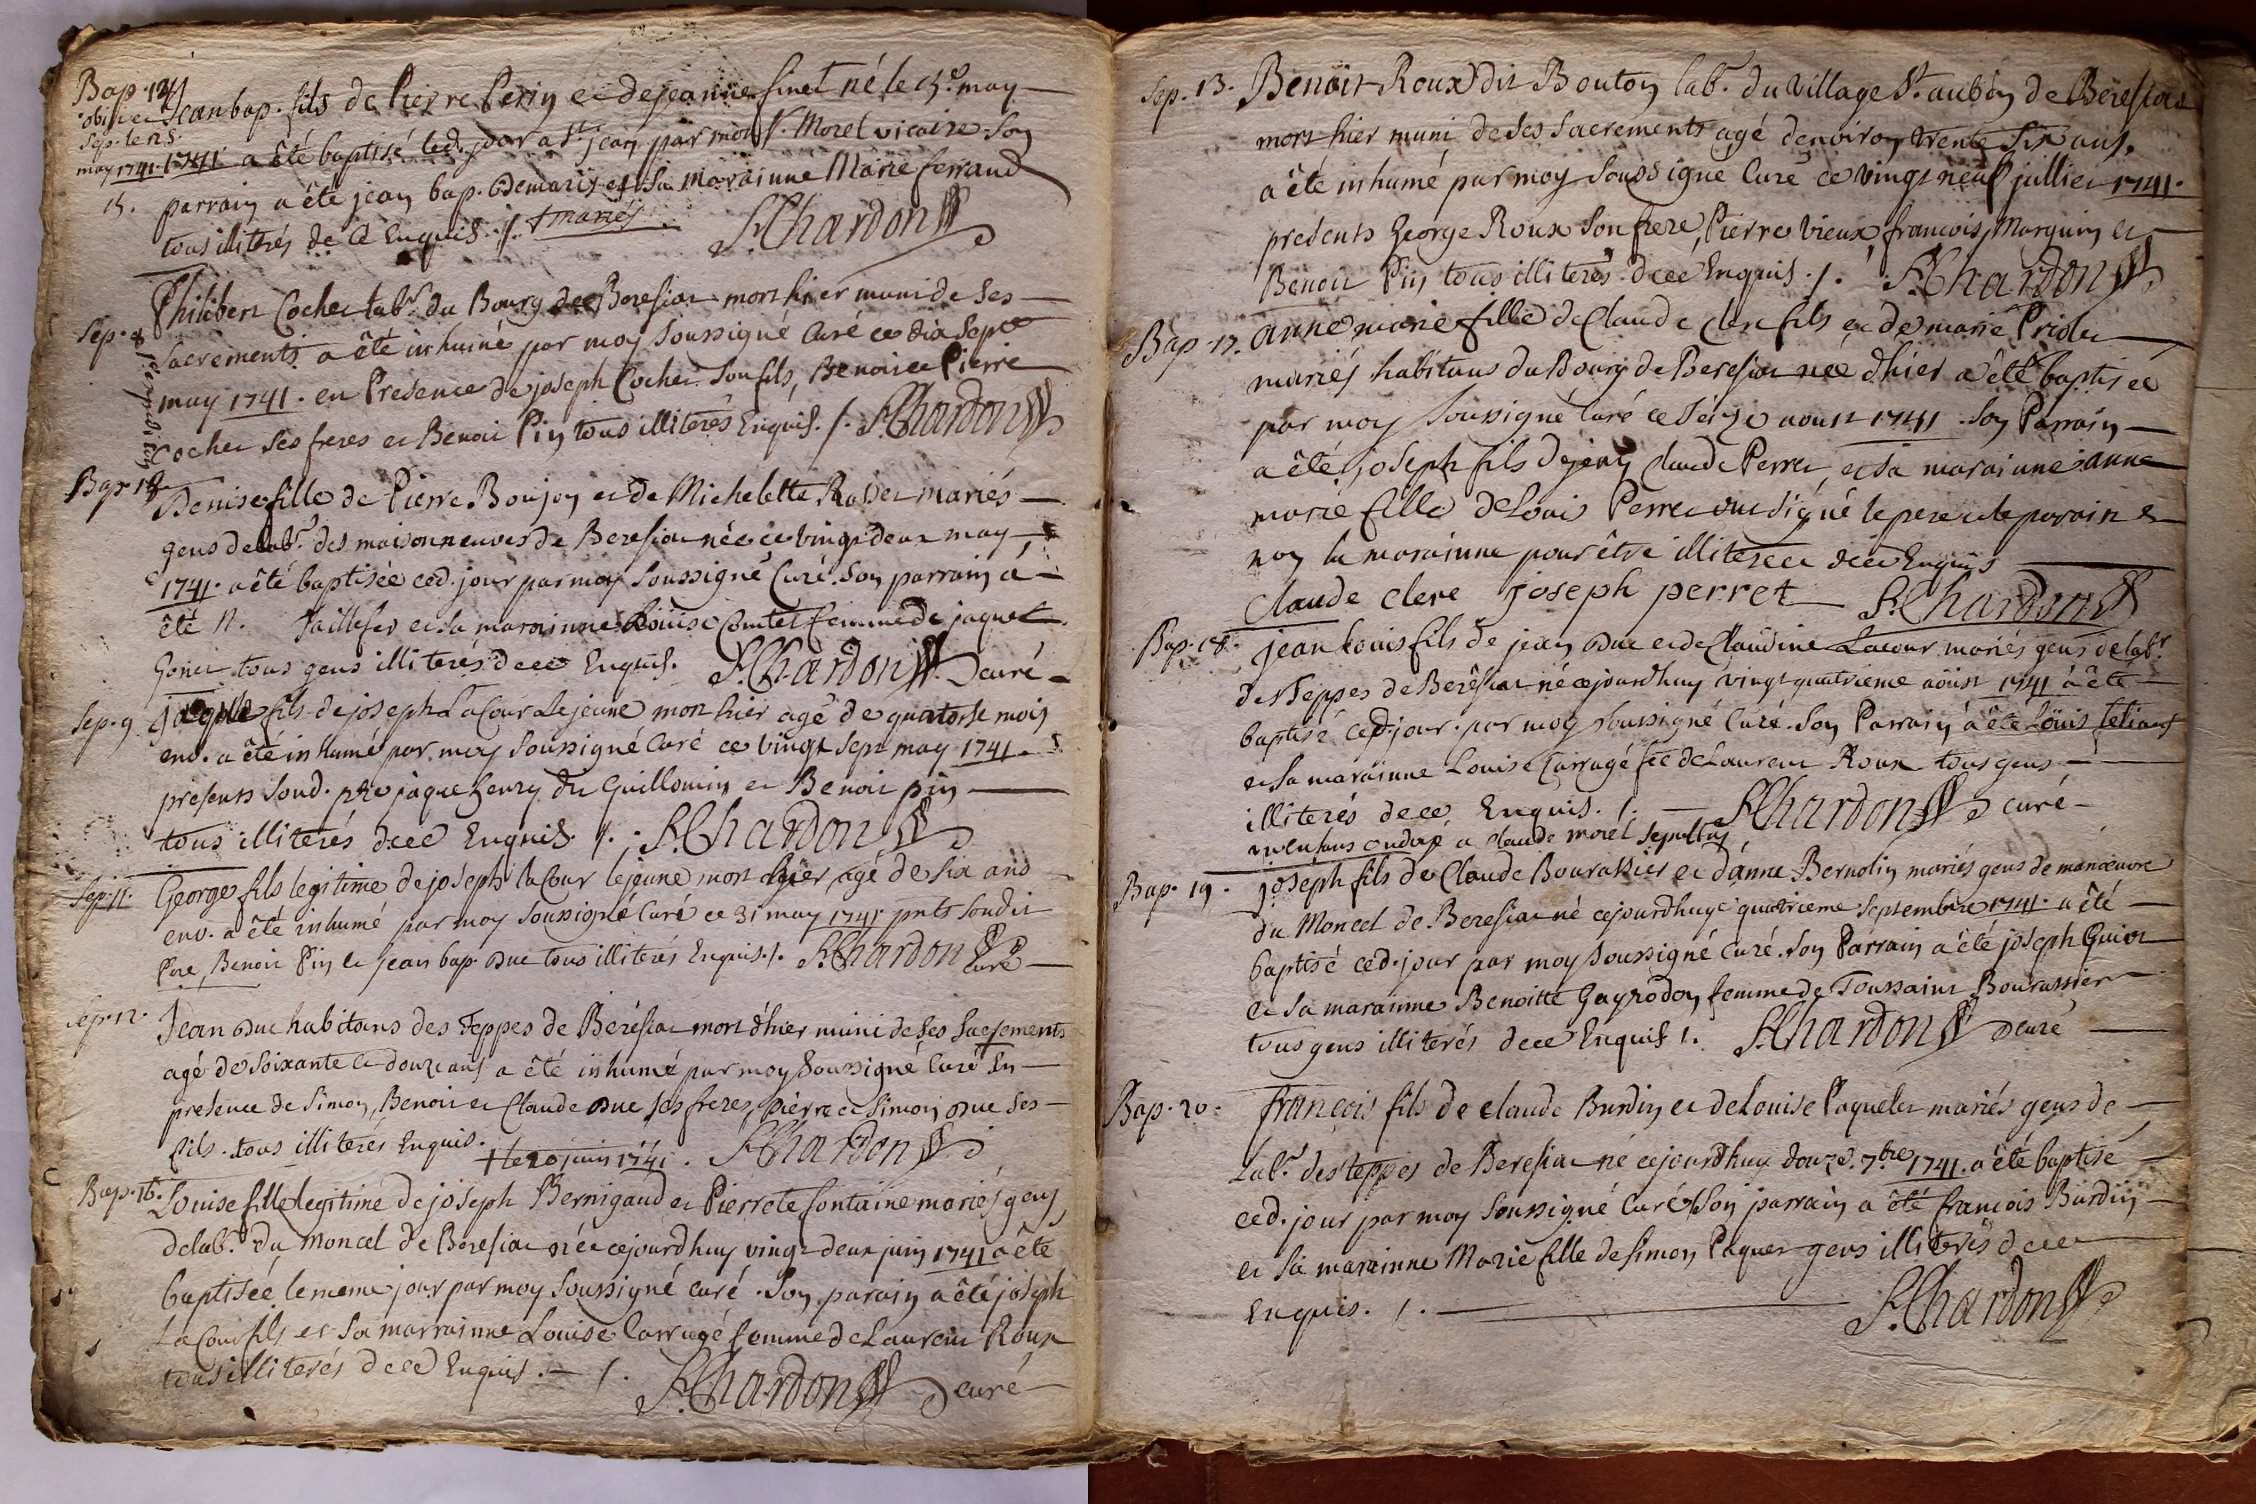 Bap. 14
obiit et
Sep. le 25
may 1741
15.
Jean bap. fils de Pierre Perin et de jeanne finet né le 15e may
1741 a êté baptisé led. jour a St jean par mons.r Morel vicaire. Son
parrain a êté jean bap. Demaris et sa marainne Marie ferraud
tous illiterés de ce Enquis ./. + mariés
S. Chardon
Sep. 8
Philibert Cochet lab.r du Bourg de Beresiat mort hier muni de ses
sacrements a êté inhumé par moy soussigné Curé ce dix sept
may 1741. en Presence de joseph Cochet son fils, Benoit et Pierre
Cochet ses freres et Benoit Pin tous illiterés Enquis ./. S. Chardon
Bap. 18
Denise fille de Pierre Boujon et de Michelette Rosset mariés
gens de lab.r des maisonneuves de Beresiat née ce vingt deux may
1741. a êté baptisée ced. jour par moy soussigné Curé. Son parrain a
êté N. Taillefer et sa marainne Louise Comtet femme de jaque
Gonet tous gens illiterés de ce Enquis. S. Chardon curé
Sep. 9
jaque fils de joseph LaCour Lejeune mort hier agé de quatorse mois
env. a êté inhumé par moy soussigné Curé ce vingt sept may 1741.
presents soud. pere jaque henry du Guillomin et Benoit pin
tous illiterés de ce Enquis ./. S. Chardon
Sep. 11.
George fils legitime de joseph laCour lejeune mort hier agé de six ans
env. a êté inhumé par moy soussigné Curé ce 31 may 1741. pnts sondit
Pere, Benoit Pin et jean bap. Duc tous illiterés Enquis ./. S. Chardon curé
Sep. 12.
Jean Duc habitans des Teppes de Beresiat mort d'hier muni de ses sacrements
agé de soixante et douze ans a êté inhumé par moy soussigné Curé En
presence de Simon, Benoit et Claude Duc ses freres, Pierre et Simon Duc ses
fils. tous illiterés Enquis. + le 20 juin 1741. S. Chardon
Bap. 16.
Louise fille legitime de joseph Bernigaud et Pierrete fontaine mariés gens
de lab.r du Moncel de Beresiat née cejourd'huy vingt deux juin 1741 a êté
baptisée le meme jour par moy soussigné curé. Son parain a êté joseph
LaCour fils et sa marrainne Louise Carrugé femme de Laurent Roux
tous illiterés de ce Enquis. ./. S. Chardon curé
Sep. 13.
Benoit Roux dit Bouton lab.r du village St aubin de Beresiat
mort hier muni de ses sacrements agé denviron trente six ans.
a êté inhumé par moy soussigné Curé ce vingt neuf juillet 1741.
presents George Roux son frere, Pierre Vieux, francois Marguin et
Benoit Pin tous illiterés de ce Enquis ./. S. Chardon
Bap. 17.
anne marie fille de Claude Clere fils et de marie Priolet
mariés habitans du Bourg de Beresiat née d'hier a êté baptisée
par moy soussigné Curé ce seize aoust 1741. Son Parrain
a êté joseph fils de jean Claude Perret, et sa marainne anne
marie fille de Louis Perret ont signé le pere et le parain et
non la marainne pour être illiterée de ce Enquis
Claude Clere joseph perret S. Chardon
Bap. 18.
jean Louis fils de jean Duc et de Claudine Lacour mariés gens de lab.r
des Teppes de Berêsiat né cejourdhuy vingt quatrieme aoust 1741 a êté
baptisé ced. jour par moy soussigné Curé. Son Parrain a êté Louis
et sa marainne Louise Carrugé fe de Laurent Roux tous gens
illiterés de ce Enquis ./. S. Chardon curé
un enfans ondoyé a Claude morel
Bap. 19.
joseph fils de Claude Bourassier et d'anne Bernolin mariés gens de manoeuvre
du Moncel de Beresiat né cejourdhuy quatrieme Septembre 1741. a êté
baptisé ced. jour par moy soussigné Curé. Son Parrain a êté joseph Guiot
et sa marainne Benoitte Gayrodon femme de Toussaint Bourassier
tous gens illiterés de ce Enquis ./. S. Chardon curé
Bap. 20.
françois fils de Claude Burdin et de Louise Paquelet mariés gens de
Lab.r des teppes de Beresiat né cejourdhuy douze 7bre 1741. a êté baptisé
ced. jour par moy soussigné Curé. Son parrain a êté francois Burdin
et sa marainne Marie fille de simon Paquet gens illiterés de ce
Enquis. ./. S. Chardon